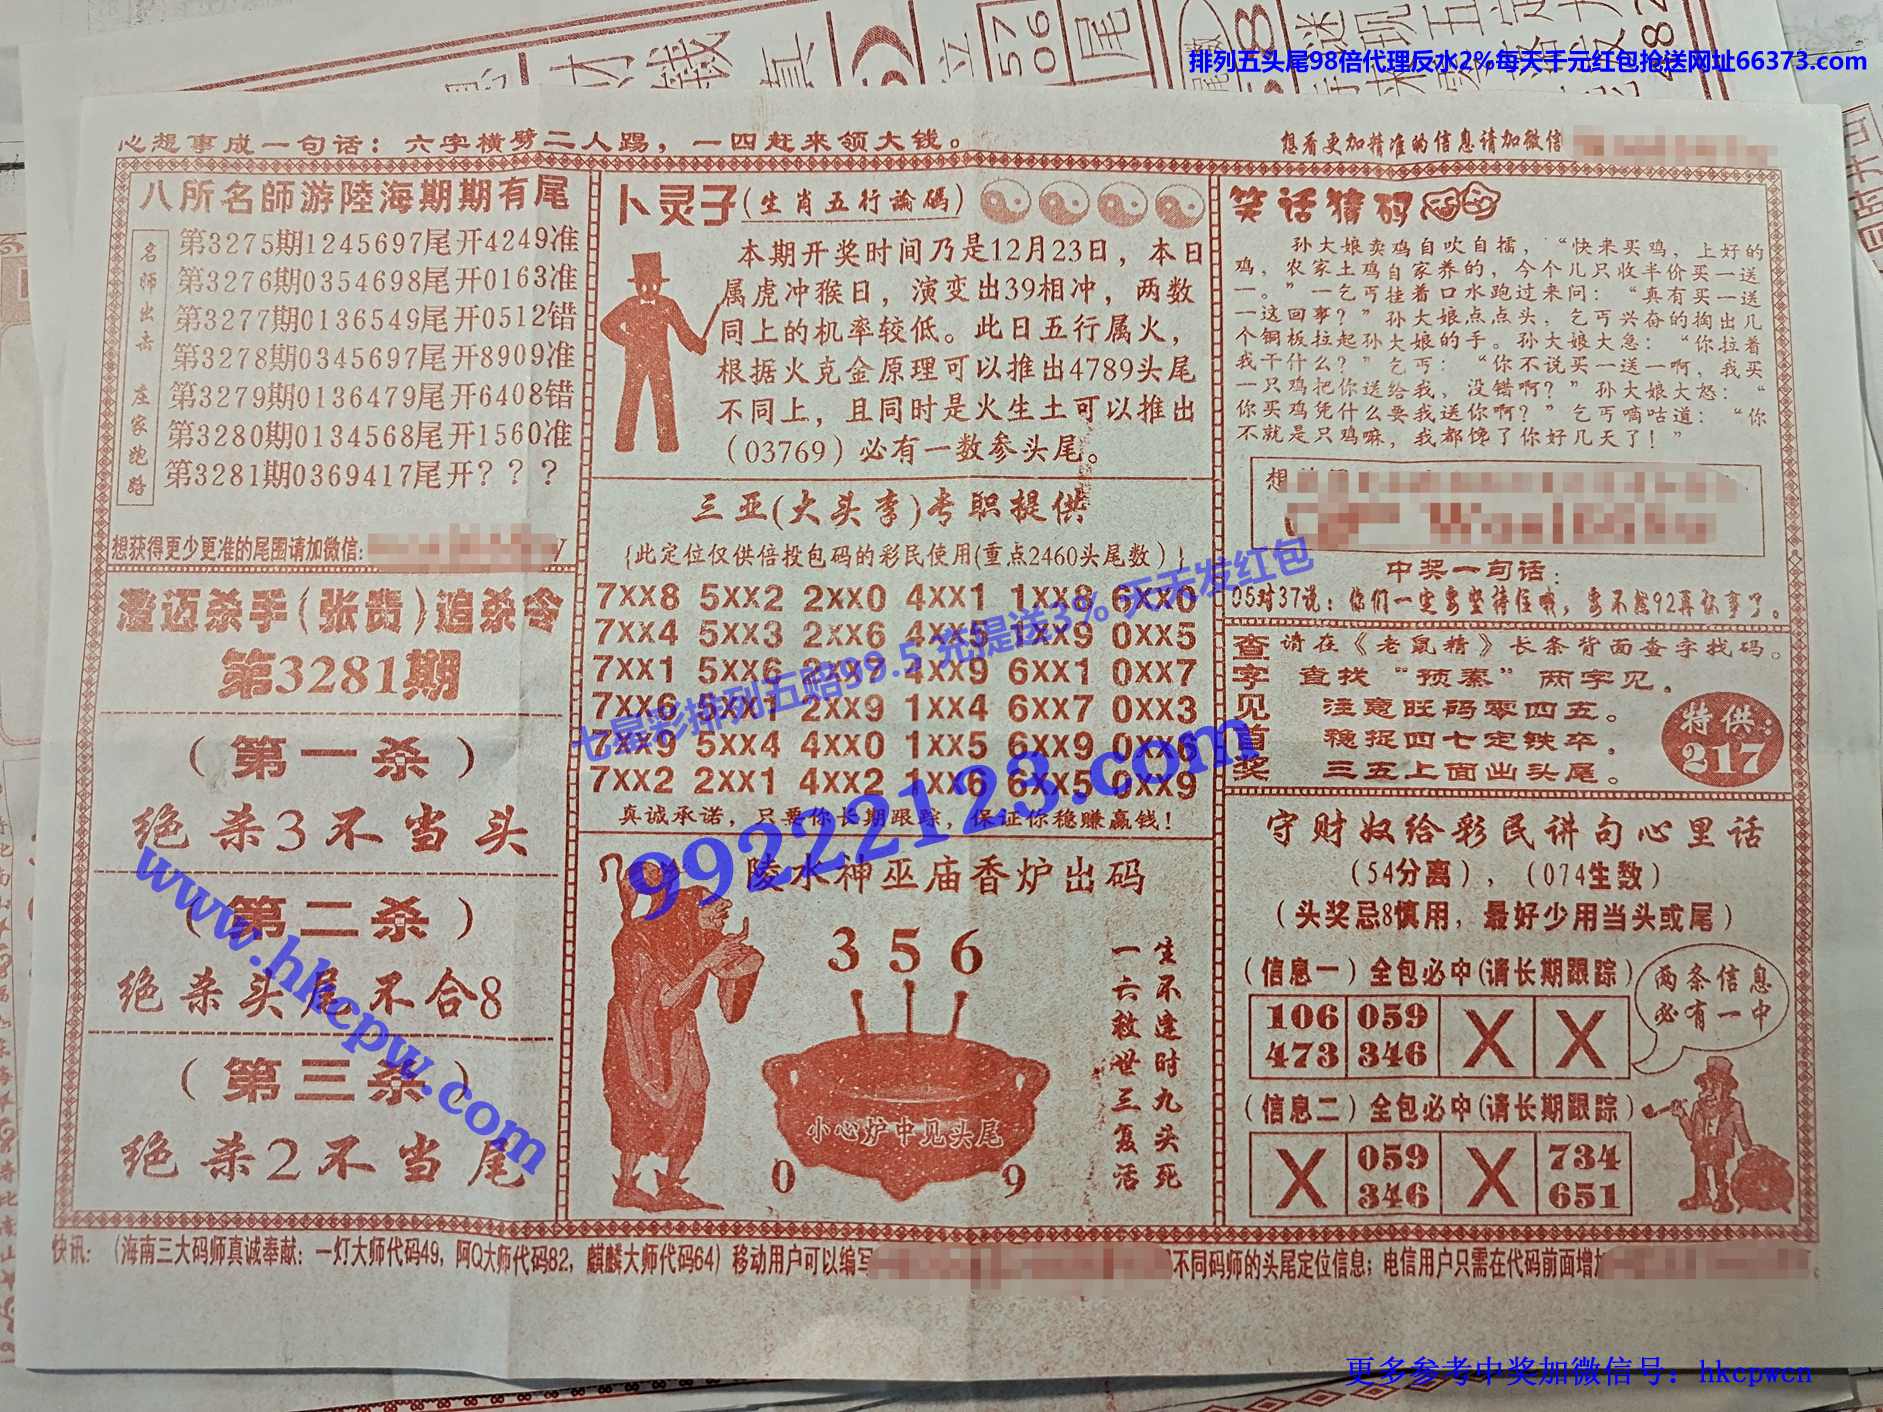 排列五头尾98倍代理反水2%每天千元红包抢送网址66373.com
57
06
尾
心想事成一句话：六字横劈二人踢，一四赶来领大钱。
想看更加精准的信息请加微信
八所名師游陸海期期有尾
名师出击 庄家跑路
第3275期1245697尾开4249准
第3276期0354698尾开0163准
第3277期0136549尾开0512错
第3278期0345697尾开8909准
第3279期0136479尾开6408错
第3280期0134568尾开1560准
第3281期0369417尾开？？？
想获得更少更准的尾围请加微信:
澄迈杀手(张贵)追杀令
第3281期
(第一杀)
绝杀3不当头
(第二杀)
绝杀头尾不合8
(第三杀)
绝杀2不当尾
卜灵子(生肖五行論碼)
本期开奖时间乃是12月23日，本日
属虎冲猴日，演变出39相冲，两数
同上的机率较低。此日五行属火，
根据火克金原理可以推出4789头尾
不同上，且同时是火生土可以推出
(03769)必有一数参头尾。
三亚(大头李)专职提供
{此定位仅供倍投包码的彩民使用(重点2460头尾数)}
7XX8 5XX2 2XX0 4XX1 1XX8 6XX0
7XX4 5XX3 2XX6 4XX5 1XX9 0XX5
7XX1 5XX6 2XX7 4XX9 6XX1 0XX7
7XX6 5XX1 2XX9 1XX4 6XX7 0XX3
7XX9 5XX4 4XX0 1XX5 6XX9 0XX6
7XX2 2XX1 4XX2 1XX6 6XX5 0XX9
真诚承诺，只要你长期跟踪，保证你稳赚赢钱！
陵水神巫庙香炉出码
3 5 6
生不逢时九头死
一六救世三复活
小心炉中见头尾
0 9
笑话猜码
孙大娘卖鸡自吹自擂，“快来买鸡，上好的
鸡，农家土鸡自家养的，今个儿只收半价买一送
一。”一乞丐挂着口水跑过来问：“真有买一送
一这回事？”孙大娘点点头，乞丐兴奋的掏出几
个铜板拉起孙大娘的手。孙大娘大急：“你拉着
我干什么？”乞丐：“你不说买一送一啊，我买
一只鸡把你送给我，没错啊？”孙大娘大怒：“
你买鸡凭什么要我送你啊？”乞丐嘀咕道：“你
不就是只鸡嘛，我都馋了你好几天了！”
想
中奖一句话：
05对37说：你们一定要坚持住哦，要不然92再惹事了。
查字见首奖
请在《老鼠精》长条背面查字找码。
查找“预秦”两字见。
注意旺码零四五。
稳捉四七定铁卒。
三五上面出头尾。
特供：
217
守财奴给彩民讲句心里话
(54分离)，(074生数)
(头奖忌8慎用，最好少用当头或尾)
(信息一)全包必中(请长期跟踪)
106 059 X X
473 346
两条信息
必有一中
(信息二)全包必中(请长期跟踪)
X 059 X 734
346 651
快讯：(海南三大码师真诚奉献：一灯大师代码49，阿Q大师代码82，麒麟大师代码64)移动用户可以编写
不同码师的头尾定位信息；电信用户只需在代码前面增加
七星彩排列五赔99.5 充提送3% 天天发红包
99222123.com
www.hkcpw.com
更多参考中奖加微信号：hkcpwcn